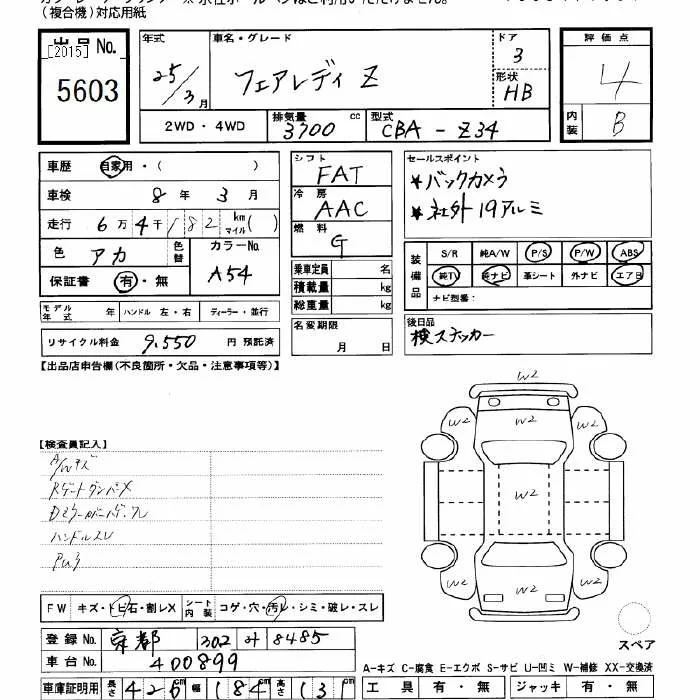 (複合機)対応用紙
出品 No.
[2015]
5603
年式 車名・グレード ドア 評価点
25/3月 フェアレディ Z 3 4
形状
HB
2WD・4WD 排気量 3700 cc 型式 CBA - Z34 内装 B
車歴 自家用・( )
車検 8年 3月
走行 6万 4千 182 km マイル( )
色 アカ 色替 カラーNo. A54
保証書 有・無
モデル年式 年 ハンドル 左・右 ディーラー・並行
リサイクル料金 9,550 円 預託済
シフト FAT
冷房 AAC
燃料 G
乗車定員 名
積載量 kg
総重量 kg
名変期限 月 日
セールスポイント
*バックカメラ
*社外19アルミ
装備品 S/R 純A/W P/S P/W ABS
純TV 純ナビ 革シート 外ナビ エアB
ナビ型番:
後日品
検ステッカー
【出品店申告欄(不良箇所・欠品・注意事項等)】
【検査員記入】
A/Wキズ
Rゲートダンパー×
ハンドルスレ
W2
W2 W2
W2
W2 W2
W2
FW キズ・トビ石・割レX シート内装 コゲ・穴・汚レ・シミ・破レ・スレ
登録 No. 京都 302 8485
車台 No. 400899
スペア
A-キズ C-腐食 E-エクボ S-サビ U-凹ミ W-補修 XX-交換済
車庫証明用 長さ 426cm 幅 184cm 高さ 131cm
工具 有・無 ジャッキ 有・無